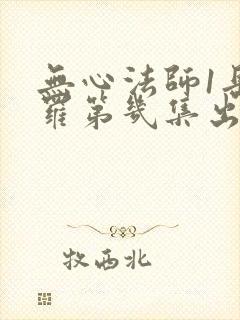 無心法師1岳
羅第幾集出
牧西北